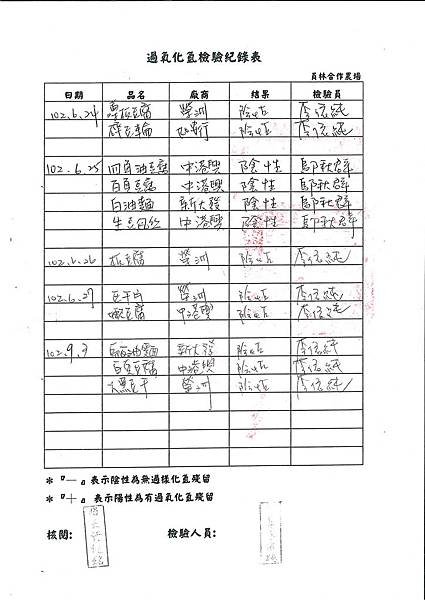 過氧化氫檢驗紀錄表
員林合作農場
日期 品名 廠商 結果 檢驗員
102.6.24 板豆腐 榮洲 陰性 李依純
豆輪 陰性 李依純
102.6.25 四角油豆腐 中港興 陰性 邱秋群
百頁豆腐 中港興 陰性 邱秋群
白油麵 新大發 陰性 邱秋群
生豆包絲 中港興 陰性 邱秋群
102.6.26 板豆腐 榮洲 陰性 李依純
102.6.27 豆干片 榮洲 陰性 李依純
豆腐 中港興 陰性 李依純
102.9.3 油麵 新大發 陰性 李依純
百頁豆腐 中港興 陰性 李依純
大黑豆干 榮洲 陰性 李依純
＊『－』表示陰性為無過樣化氫殘留
＊『＋』表示陽性為有過氧化氫殘留
核閱: 檢驗人員: